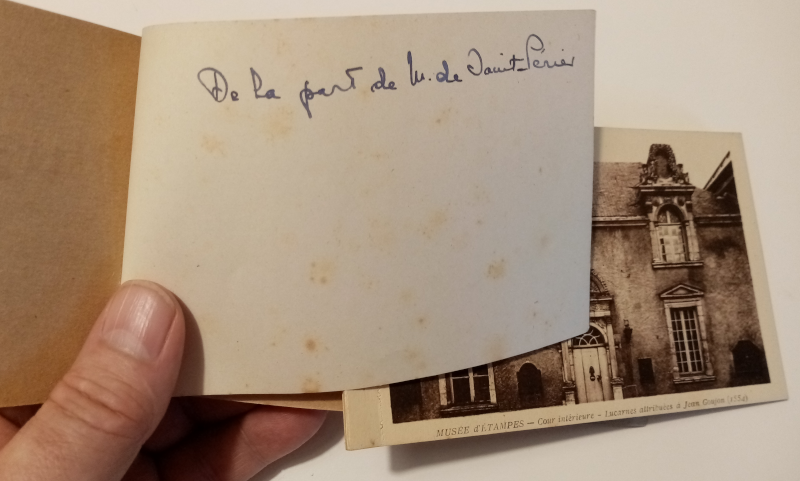 De la part de M. de Saint-Périer
MUSÉE d'ÉTAMPES — Cour intérieure - Lucarnes attribuées à Jean Goujon (1554)